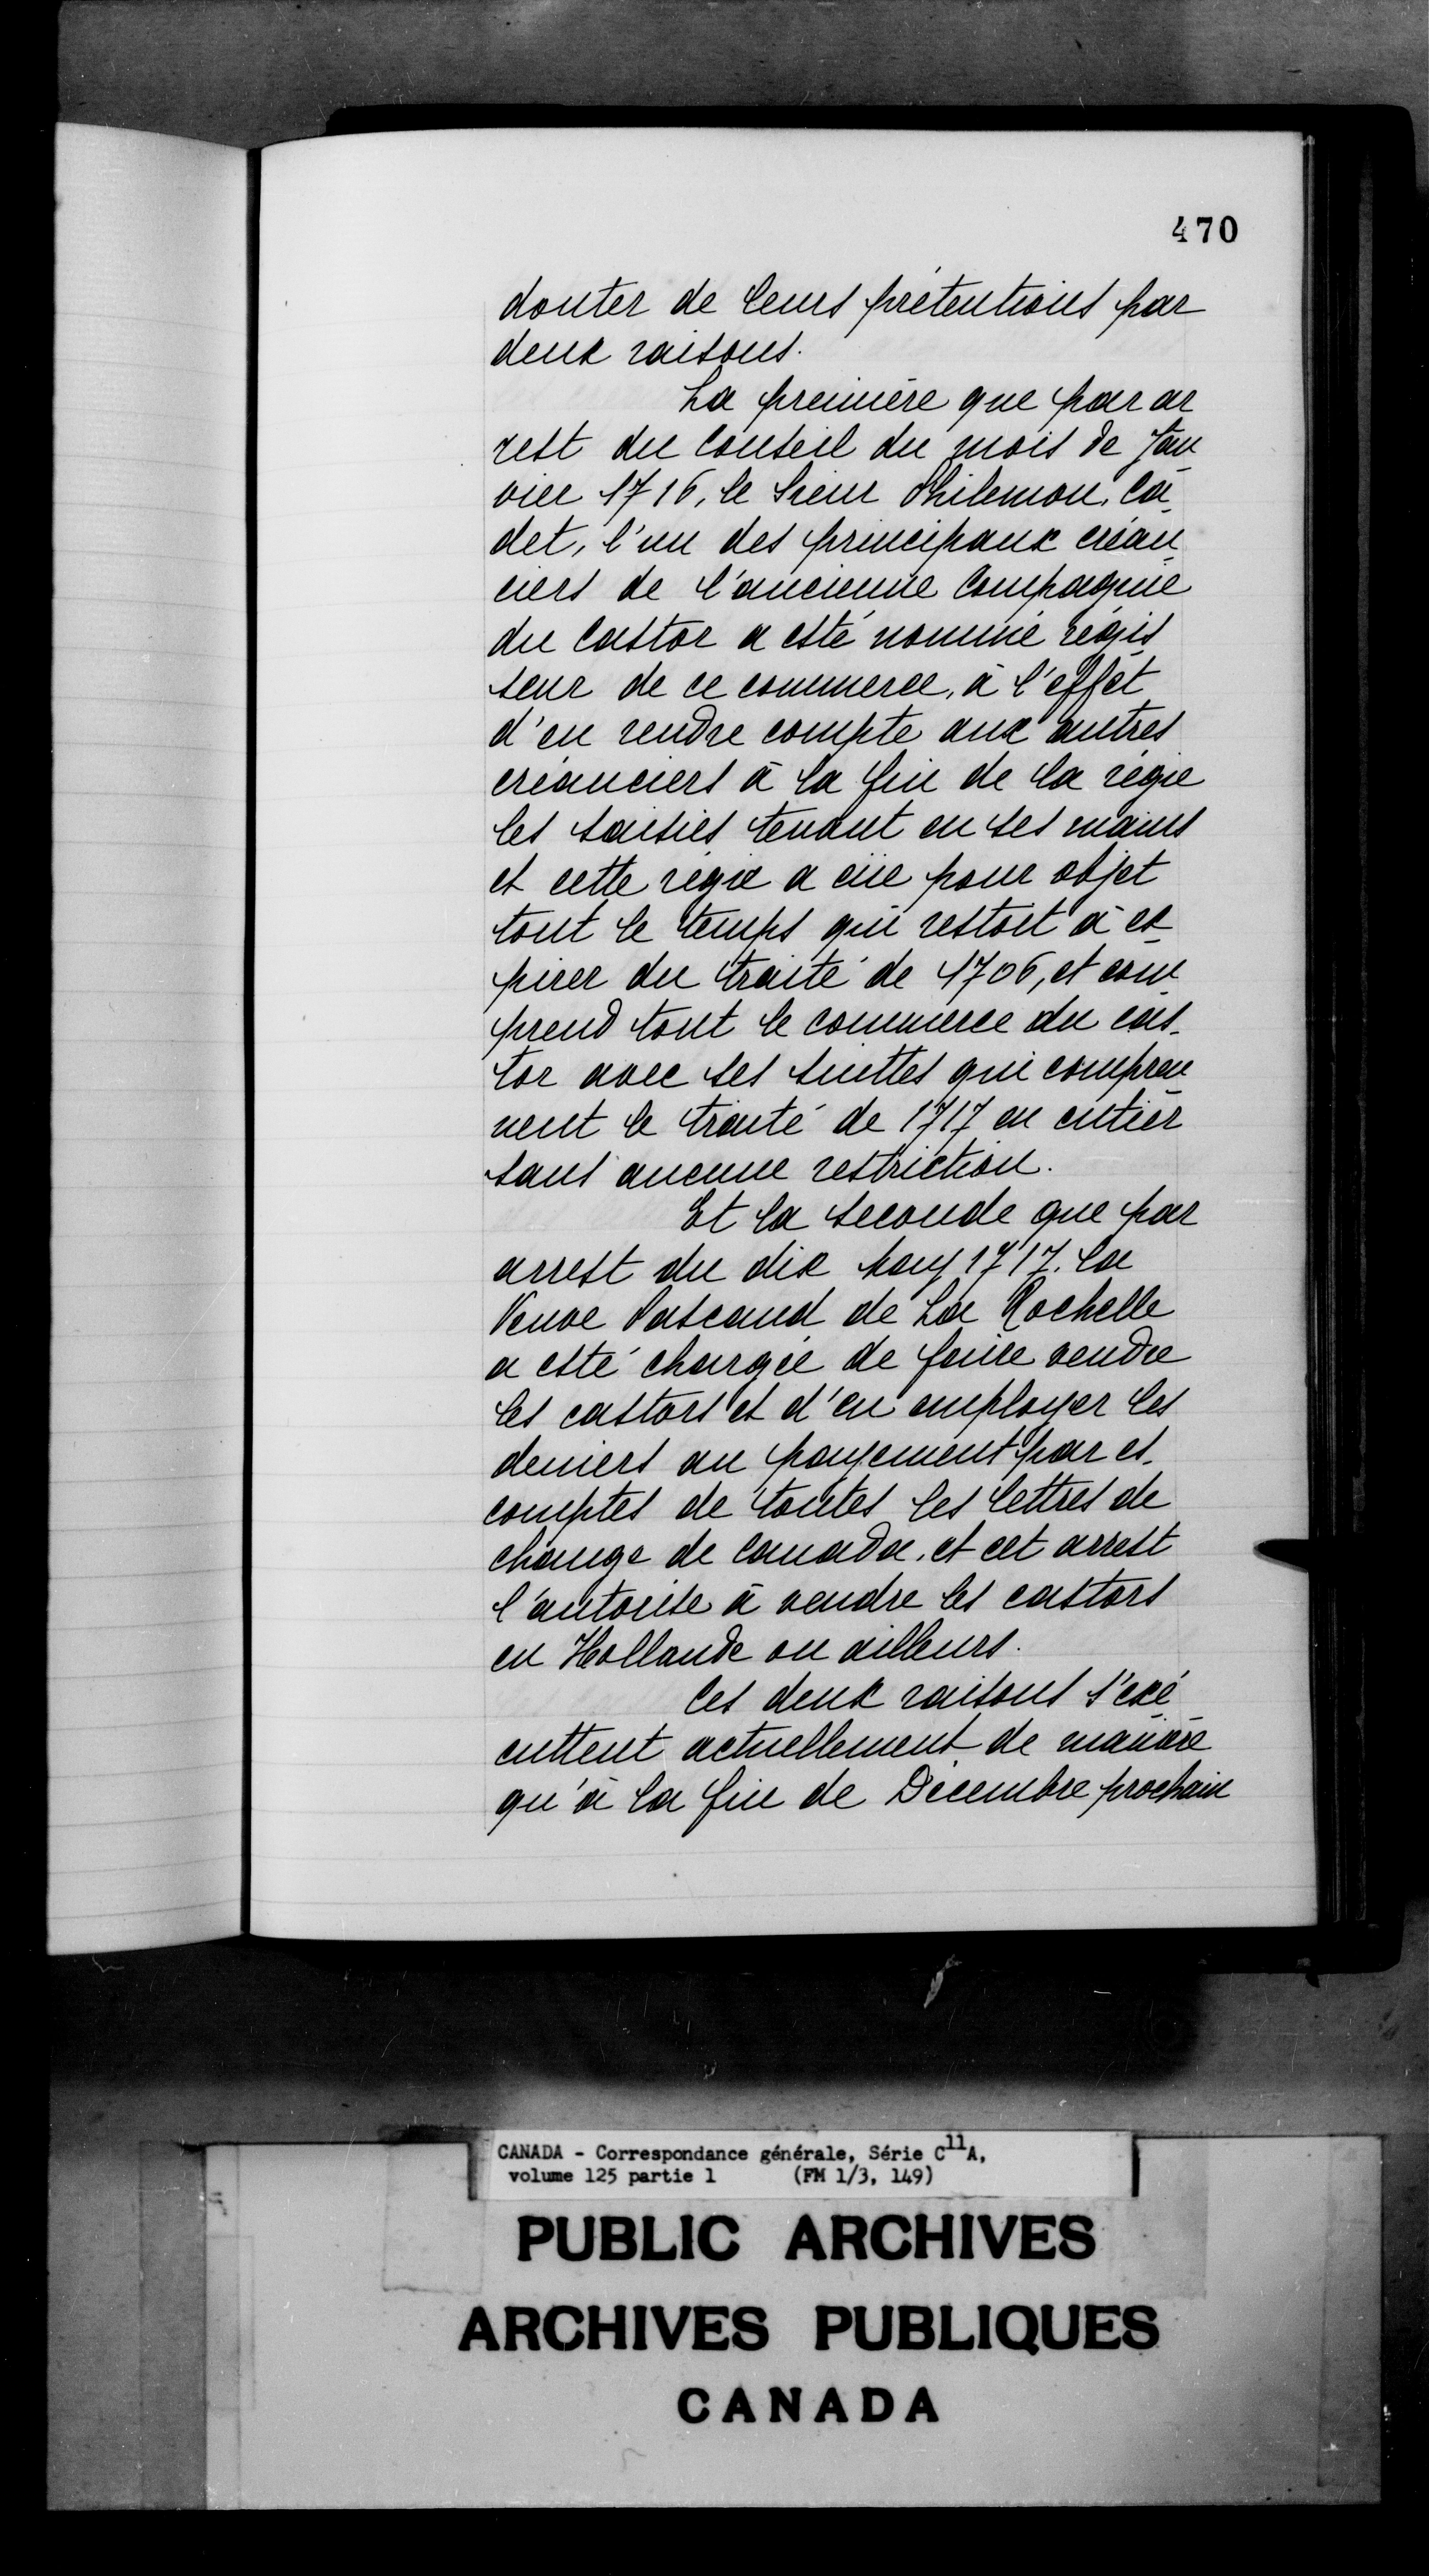 470
douter de leurs prétentions par
deux raisons.
La première que par ar
rest du Conseil du mois de Jan
vier 1716, le Sieur Philemon, Ca-
det, l'un des principaux créan
ciers de l'ancienne Compagnie
du Castor a esté nommé régis
seur de ce commerce, à l'effet
d'en rendre compte aux autres
créanciers à la fin de la régie
les saisies tenant en ses mains
et cette régie a eüe pour objet
tout le temps qui restoit à ex
pirer du traité de 1706, et com
prend tout le commerce du cas-
tor avec ses suittes qui compren
nent le traité de 1717 en entier
sans aucune restriction.
Et la seconde que par
arrest du dix May 1717. la
Veuve Pascaud de La Rochelle
a esté chargée de faire vendre
les castors et d'en employer les
deniers au payement par es-
comptes de toutes les lettres de
change de Canada, et cet arrest
l'autorise à vendre les castors
en Hollande ou ailleurs.
Ces deux raisons s'exé
cuttent actuellement de manière
qu'à la fin de Décembre prochain
CANADA - Correspondance générale, Série C11A,
volume 125 partie 1 (FM 1/3, 149)
PUBLIC ARCHIVES
ARCHIVES PUBLIQUES
CANADA